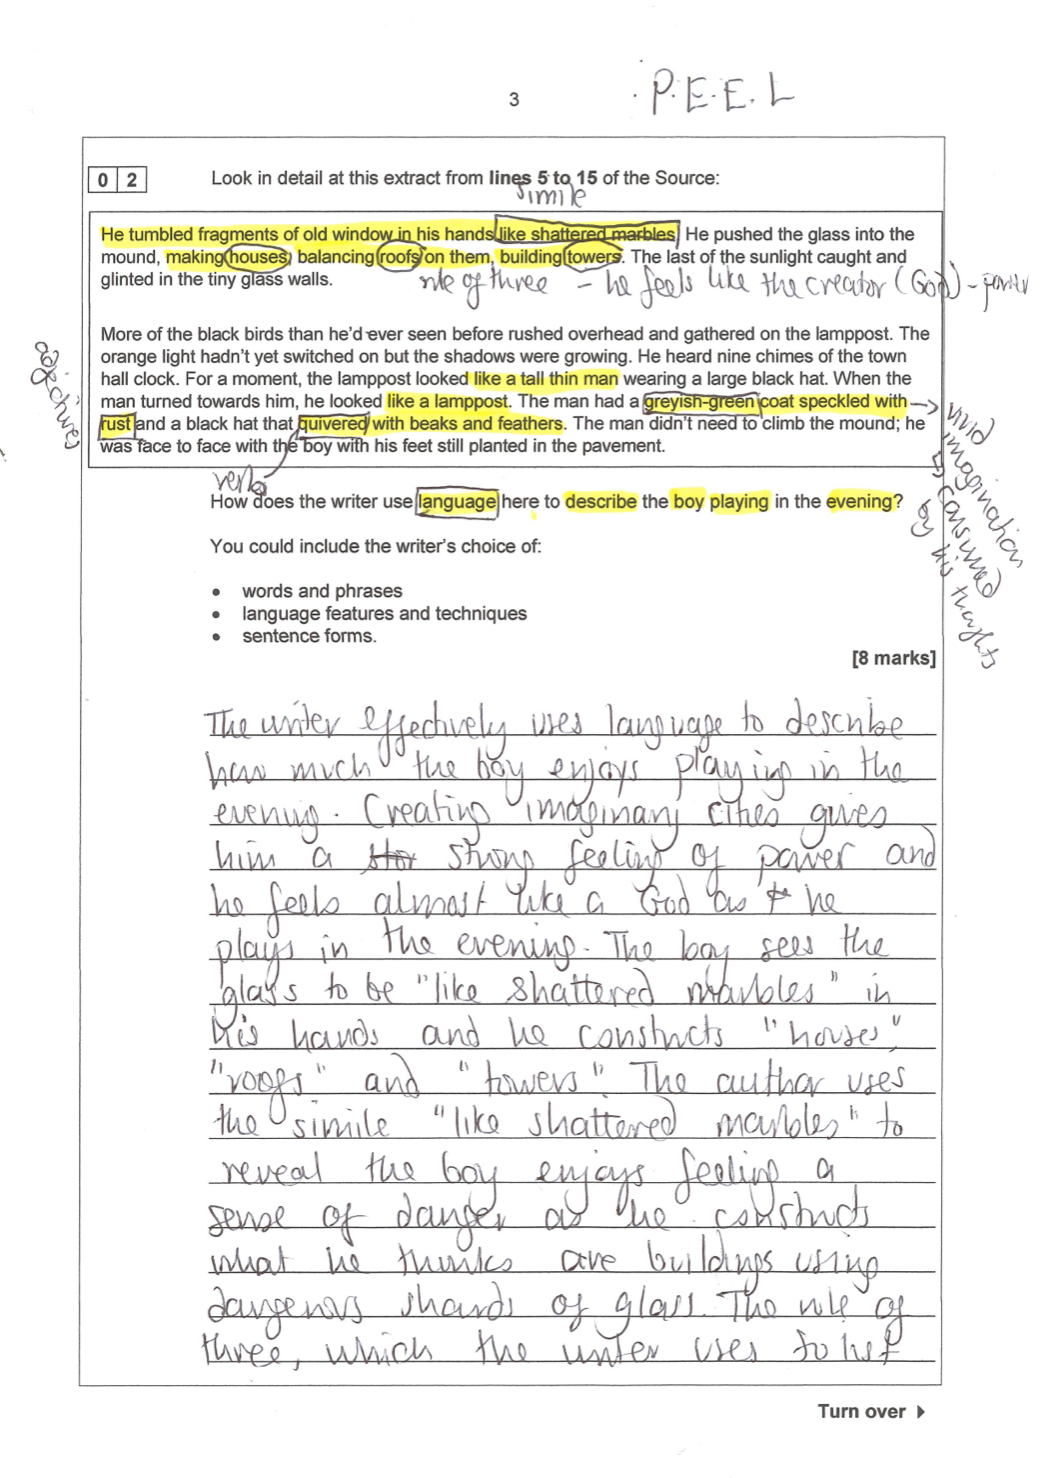 P.E.E.L
3
0 2 Look in detail at this extract from lines 5 to 15 of the Source:
simile
He tumbled fragments of old window in his hands like shattered marbles. He pushed the glass into the
mound, making houses, balancing roofs on them, building towers. The last of the sunlight caught and
glinted in the tiny glass walls.
rule of three - he feels like the creator (God) - power
More of the black birds than he'd ever seen before rushed overhead and gathered on the lamppost. The
orange light hadn't yet switched on but the shadows were growing. He heard nine chimes of the town
hall clock. For a moment, the lamppost looked like a tall thin man wearing a large black hat. When the
man turned towards him, he looked like a lamppost. The man had a greyish-green coat speckled with
rust and a black hat that quivered with beaks and feathers. The man didn't need to climb the mound; he
was face to face with the boy with his feet still planted in the pavement.
adjectives
verb
vivid
imagination
consumed
by his thoughts
How does the writer use language here to describe the boy playing in the evening?
You could include the writer's choice of:
• words and phrases
• language features and techniques
• sentence forms.
[8 marks]
The writer effectively uses language to describe
how much the boy enjoys playing in the
evening. Creating imaginary cities gives
him a strong feeling of power and
he feels almost like a God as he
plays in the evening. The boy sees the
glass to be "like shattered marbles" in
his hands and he constructs "houses",
"roofs" and "towers". The author uses
the simile "like shattered marbles" to
reveal the boy enjoys feeling a
sense of danger as he constructs
what he thinks are buildings using
dangerous shards of glass. The rule of
three, which the writer uses to list
Turn over